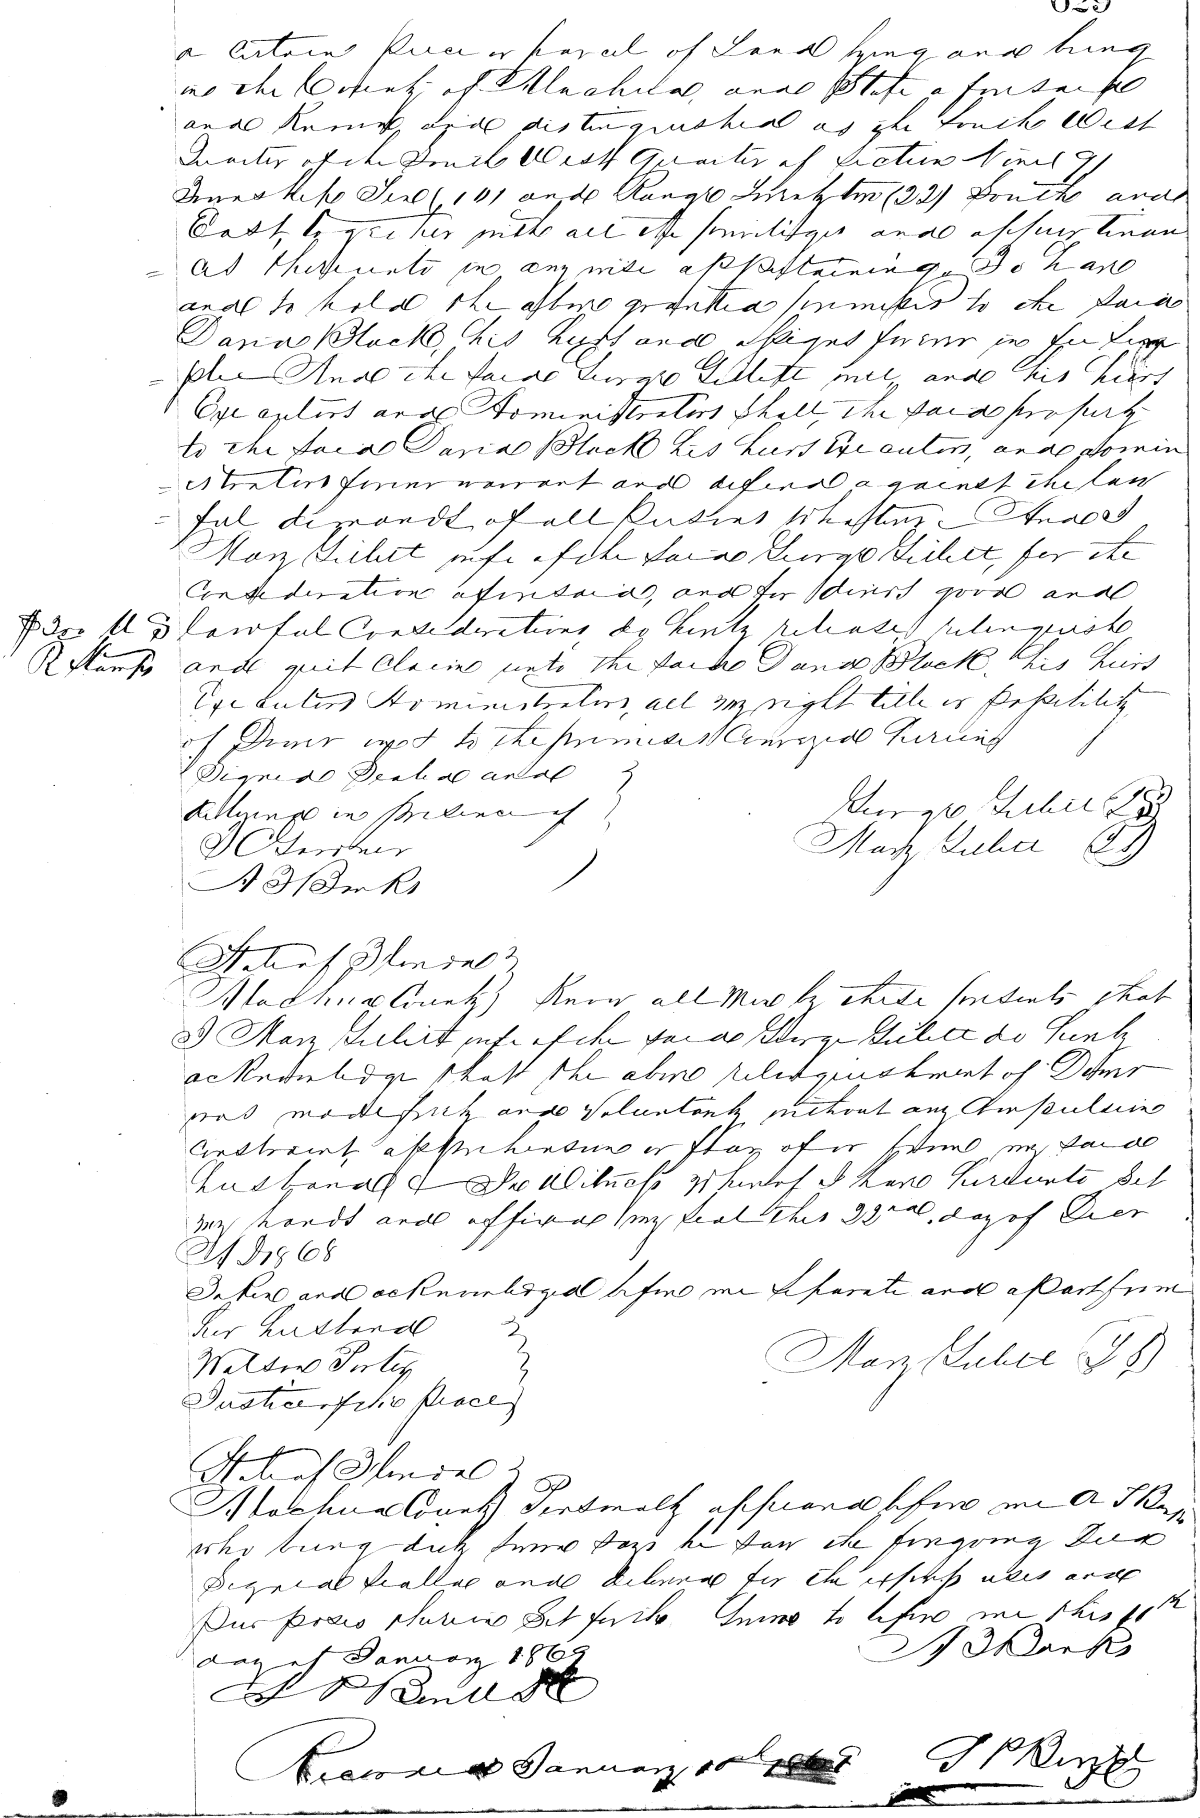 a certain Piece or parcel of Land lying and being
in the County of Alachua, and State aforesaid
and Known and distinguished as the South West
Quarter of the South West Quarter of Section Nine (9)
Township Ten (10) and Range Twenty two (22) South and
East, together with all the priviliges and appurtinan
= ces thereunto in any wise appertaining. To have
and to hold the above granted premises to the said
David Black, his heirs and assigns forever in fee sim
= ple And the said George Gillett will, and his heirs
Executors and Administrators shall, the said property
to the said David Black his heirs Executors, and admin
= istrators forever warrant and defend against the law
= ful demands of all Persons Whatever. And I
Mary Gillett wife of the said George Gillett, for the
Consideration aforesaid, and for divers good and
$300 U S lawful Considerations, do hereby release, relinquish
R Stamps and quit Claim unto the said David Black, his heirs
Executors Administrators, all my right title or possibility
of Dower in & to the premises Conveyed herein
Signed Sealed and
delivered in presence of George Gillett (LS)
Mary Gillett (LS)
State of Florida
Alachua County Know all Men by these presents that
I Mary Gillett wife of the said George Gillett do hereby
acknowledge that the above relinquishment of Dower
was made freely and voluntarily without any Compulsion
Constraint, apprehension or fear of or from my said
husband & In Witness Whereof I have hereunto Set
my hands and affixed my seal this 22nd. day of Decr
A D 1868
Taken and acknowledged before me separate and apart from
her husband
Watson Porter Mary Gillett (LS)
Justice of the Peace
State of Florida
Alachua County Personally appeared before me
who being duly sworn says he saw the foregoing Deed
Signed sealed and delivered for the express uses and
Purposes therein Set forth Sworn to before me this
day of January 1869
Recorded January 1869